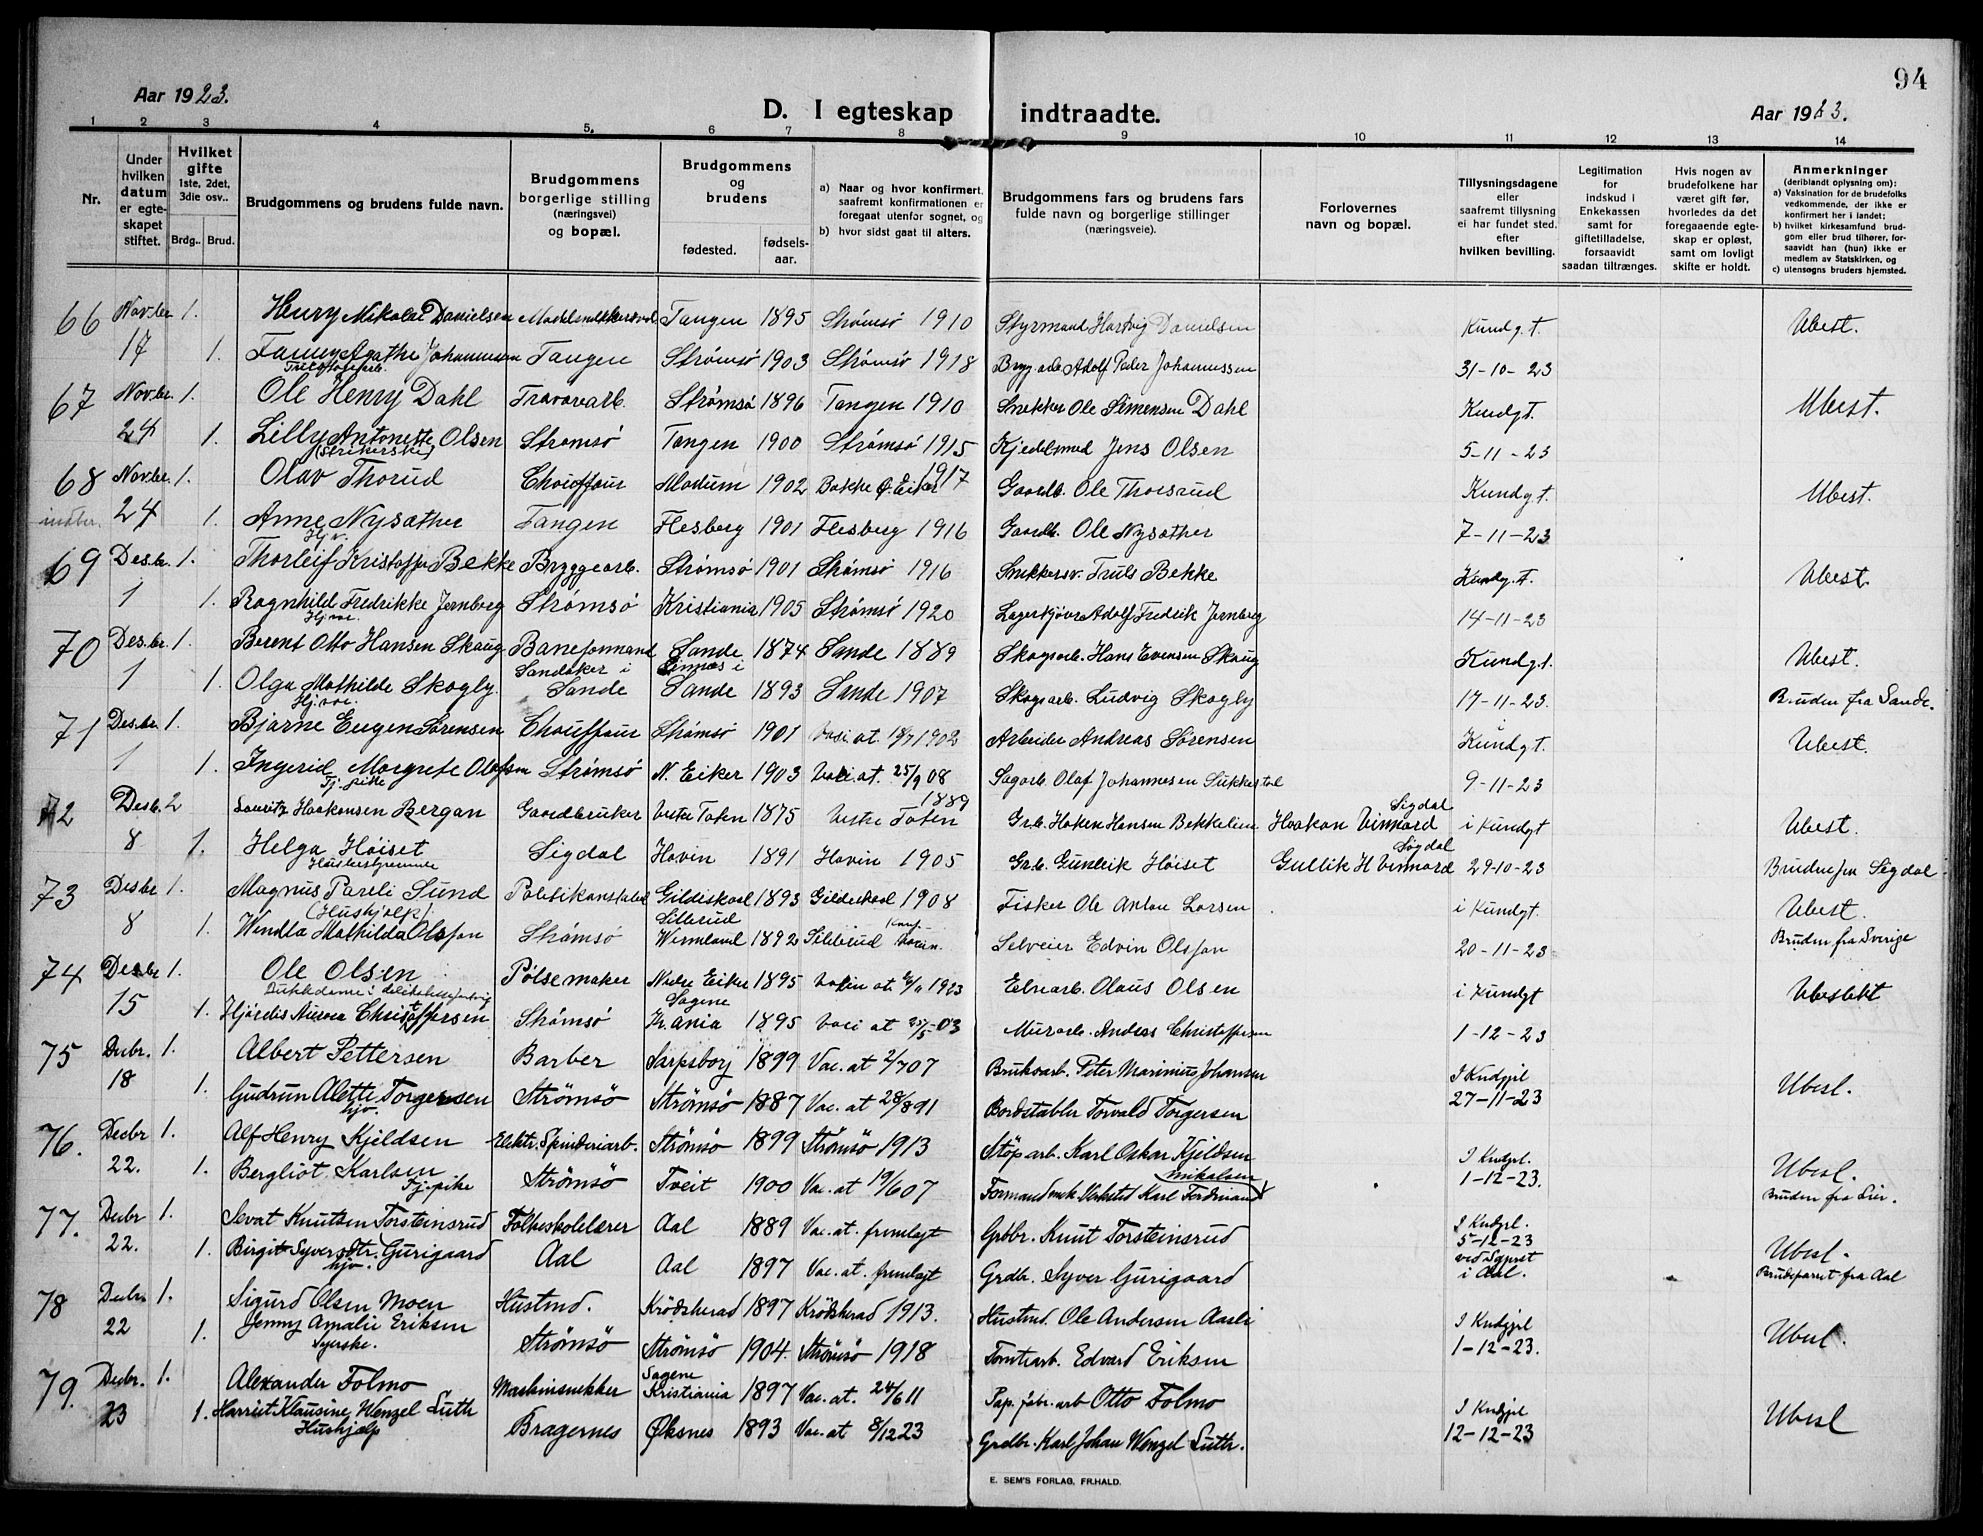 94
Aar 1923.
D. I egteskap indtraadte.
Aar 1923.
1 2 3 4 5. 6 7 8 9 10 11 12 13 14
Nr.
Under hvilken datum er egteskapet stiftet.
Hvilket gifte 1ste, 2det, 3die osv..
Brdg.. Brud.
Brudgommens og brudens fulde navn.
Brudgommens borgerlige stilling (næringsvei) og bopæl.
Brudgommens og brudens
fødested.
fødsels-aar.
a) Naar og hvor konfirmert, saafremt konfirmationen er foregaat utenfor sognet, og
b) hvor sidst gaat til alters.
Brudgommens fars og brudens fars fulde navn og borgerlige stillinger (næringsveie).
Forlovernes navn og bopæl.
Tillysningsdagene eller saafremt tillysning ei har fundet sted. efter hvilken bevilling.
Legitimation for indskud i Enkekassen samt for giftetilladelse, forsaavidt saadan tiltrænges.
Hvis nogen av brudefolkene har været gift før, hvorledes da det foregaaende egteskap er opløst, samt om lovligt skifte er holdt.
Anmerkninger (deriblandt oplysning om): a) Vaksination for de brudefolks vedkommende, der ikke er konfirmert her i landet; b) hvilket kirkesamfund brudgom eller brud tilhører, forsaavidt han (hun) ikke er medlem av Statskirken, og c) utensogns bruders hjemsted.
66 Nov.br 1. Henry Nikolai Danielsen Tangen 1895 Strømsø 1910 Styrmand Hartvig Danielsen Kundg.t. Ubest.
17 1. Fanny Agathe Johannessen Tangen Strømsø 1903 Strømsø 1918 Brygg.arb. Adolf Peder Johannessen 31-10-23
67 Nov.br. 1. Ole Henry Dahl Travarearb. Strømsø 1896 Tangen 1910 Snekker Ole Simensen Dahl Kundgt. Ubest.
24 1. Lilly Antonette Olsen Strømsø Tangen 1900 Strømsø 1915 Kjedelsmed Jens Olsen 5-11-23
(Strikerske)
68 Nov.br. 1. Olav Thorud Chauffaur Modum 1902 Bakke Ø. Eiker 1917 Gaardb. Ole Thorsrud Kundg.t. Ubest.
indbr. 24 1. Anne Nysæther Tangen Flesberg 1901 Flesberg 1916 Gaardb. Ole Nysæther 7-11-23
Hjv.
69 Des.br. 1. Thorleif Kristoffer Bekke Bryggearb. Strømsø 1901 Strømsø 1916 Snekkersv. Truls Bekke Kundg.t. Ubest.
1 1. Ragnhild Fredrikke Jernberg Strømsø Kristiania 1905 Strømsø 1920 Adolf Fredrik Jernberg 14-11-23
70 Des.br. 1. Berent Otto Hansen Skaug Baneformand Sande 1874 Sande 1889 Skogsarb. Hans Evensen Skaug Kundg.t. Ubest.
1 1. Olga Mathilde Skogly. Sandaker i Sande Sande 1893 Sande 1907 Skogsarb. Ludvig Skogly 17-11-23. Bruden fra Sande.
71 Des.br. 1. Bjarne Eugen Sørensen Chauffaur Strømsø 1901 1902 Arbeider Andreas Sørensen Kundgt. Ubest.
1 1. Ingerid Margrete Olafsen Strømsø N. Eiker 1903 Vaci.at. 25/9 08 Sagarb. Olaf Johannesen 9-11-23
Tj. pike
72 Desb. 2 Lauritz Haakonsen Bergan Gaardbruker Vestre Toten 1875 Vestre Toten 1889 Grb. Haken Hansen Bekkelien Haakon Vinnard Sigdal i Kundgt Ubest.
8 1. Helga Høiset Sigdal Hovin 1891 Hovin 1905 Grb. Gunleik Høiset Gullik H Vinnard Sigdal 29-10-23 Bruden fra Sigdal
Husbestyrerinne
73 Desbr 1. Magnus Pareli Sund Politikonstabel Gildeskaal 1893 Gildeskaal 1908 Fisker Ole Anton Larsen i Kundgt. Ubest.
(Hushjælp)
8 1. Wendla Mathilda Olsson Strømsø Sillerud Wermland 1892 Sillerud Selveier Edvin Olsson 20-11-23 Bruden fra Sverige
74 Desbr 1. Ole Olsen Pølsemaker Nedre Eiker 1895 1923 Olaus Olsen i Kundgt Ubeslekt
15 1. Hjørdis Aurora Christoffersen Strømsø Sagene Kr.ania 1895 Vaci at 25/5-03 Murarb. Andreas Christoffersen 1-12-23
75 Decbr. 1. Albert Pettersen Barber Sarpsborg 1899 Vac. at 2/7 07 Bruksarb. Peter Marinius Johansen I Kndgjsl Ubesl.
18 1. Gudrun Alette Torgersen Strømsö Strömsö 1887 Vac. at 28/8 91 Bordstabler Torvald Torgersen 27-11-23
hjv.
76. Decbr 1. Alf Henry Kjeldsen Elektr. Spinderiarb. Strömsö 1899 Strömsö 1913 Støp arb. Karl Oskar Kjeldsen I Kndgjsl. Ubesl.
22. 1. Bergliot Karlsen Strømsö Tveit 1900 Vac. at 19/6 07 Karl Ferdinand Mikalsen 1-12-23. Bruden fra Lier.
Tj-pike
77. Decbr 1. Sevat Knutsen Torsteinsrud Folkeskolelærer Aal 1889 Vac. at. fremlagt Grdbr. Knut Torsteinsrud I Kndgjsl. 5-12-23 Ubesl.
22. 1. Birgit Syversdtr. Gurigaard Aal Aal 1897 Vac. at. fremlagt Grdbr. Syver Gurigaard i Aal. Brudeparret fra Aal
hjv.
78 Decbr 1. Sigurd Olsen Moen Hustmd. Krödsherad 1897 Krödsherad 1913. Hustmd. Ole Andersen Aasli I Kndgjsl Ubesl.
22 1. Jenny Amalie Eriksen Strömsö Strömsö 1904. Strömsö 1918 Tomtearb. Edvard Eriksen 1-12-23.
Syerske.
79. Decbr. 1. Alexander Folmo Maskinsnekker Sagene Kristiania 1897 Vac. at. 24/6 11 Pap.fabr.arb Otto Folmo I Kndgjsl Ubesl
23 1. Harriet Klausine Wenzel Luth Bragernes Øksnes 1893 Vac. at 8/12 23 Grdbr. Karl Johan Wenzel Luth. 12-12-23
Hushjælp
E. SEM'S FORLAG, FR.HALD.